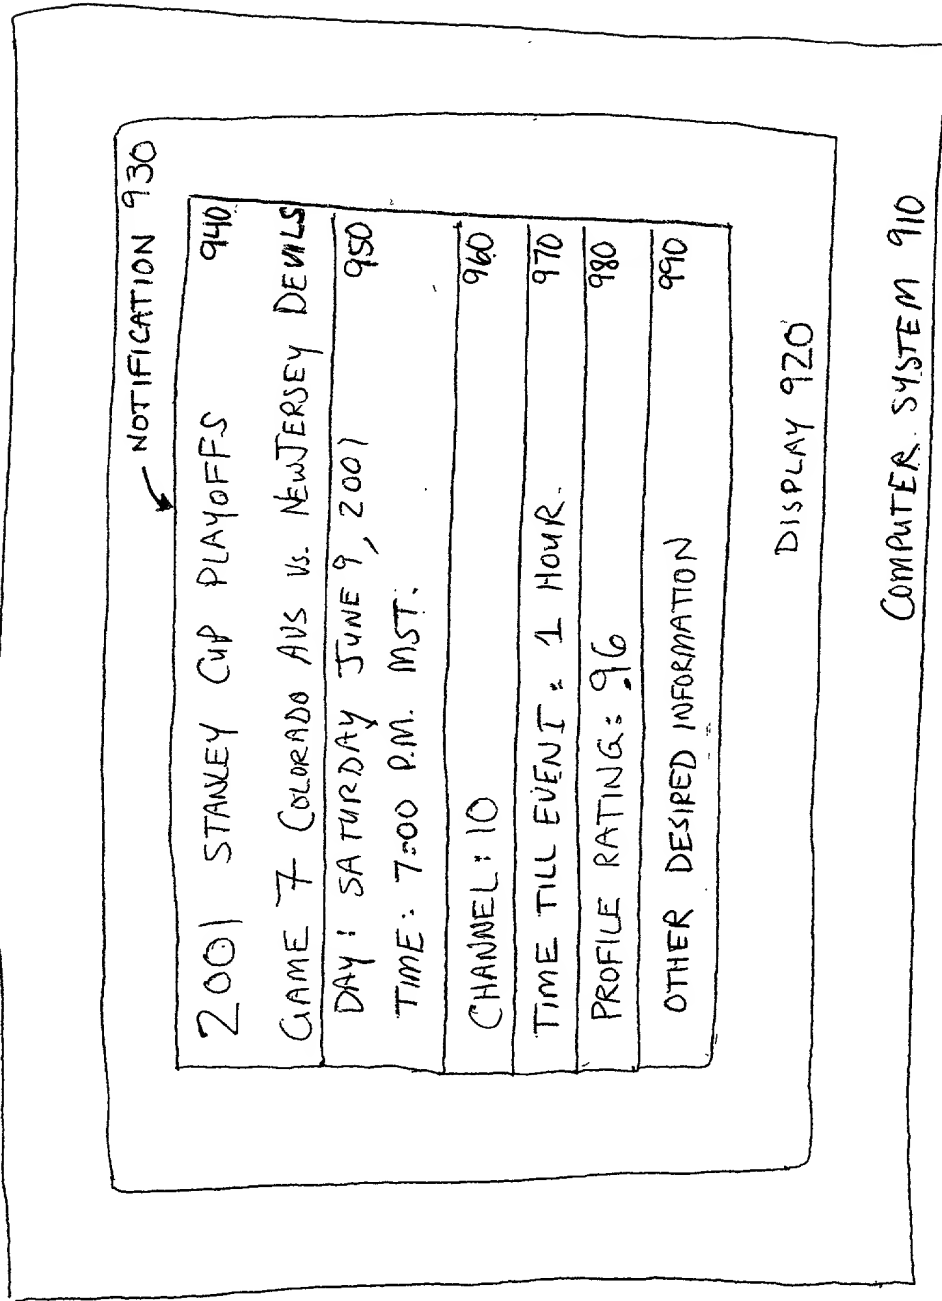 NOTIFICATION 930
2001 STANLEY CUP PLAYOFFS 940
GAME 7 COLORADO AVS Vs. NEWJERSEY DEVILS
DAY: SATURDAY JUNE 9, 2001 950
TIME: 7:00 P.M. MST.
CHANNEL: 10 960
TIME TILL EVENT: 1 HOUR. 970
PROFILE RATING: .96 980
OTHER DESIRED INFORMATION 990
DISPLAY 920
COMPUTER SYSTEM 910